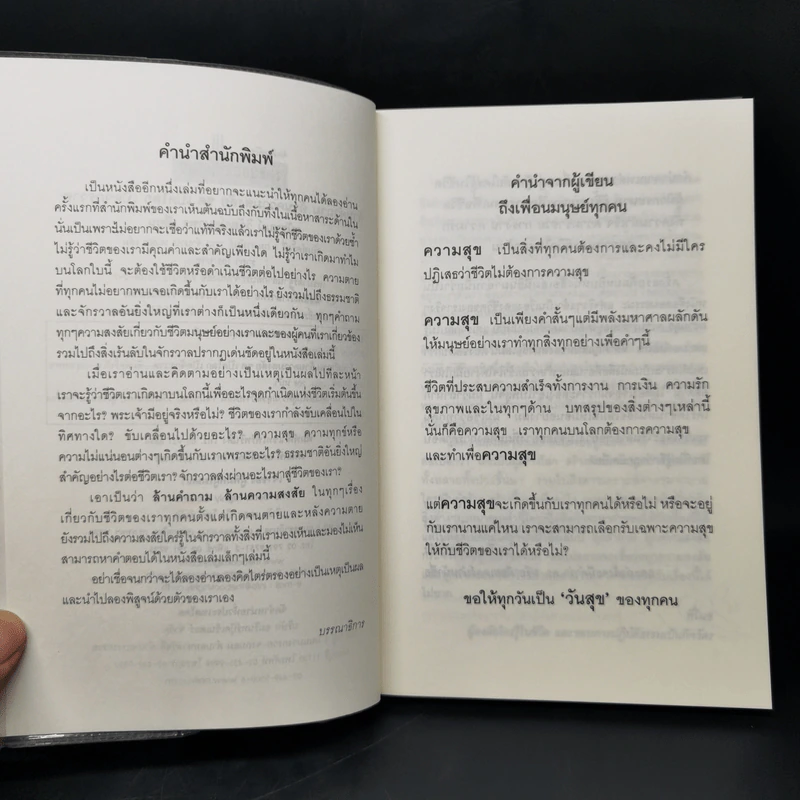 คำนำสำนักพิมพ์
เป็นหนังสืออีกหนึ่งเล่มที่อยากจะแนะนำให้ทุกคนได้ลองอ่าน
ครั้งแรกที่สำนักพิมพ์ของเราเห็นต้นฉบับถึงกับทึ่งในเนื้อหาสาระด้านใน
นั่นเป็นเพราะไม่อยากจะเชื่อว่าแท้ที่จริงแล้วเราไม่รู้จักชีวิตของเราด้วยซ้ำ
ไม่รู้ว่าชีวิตของเรามีคุณค่าและสำคัญเพียงใด ไม่รู้ว่าเราเกิดมาทำไม
บนโลกใบนี้ จะต้องใช้ชีวิตหรือดำเนินชีวิตต่อไปอย่างไร ความตาย
ที่ทุกคนไม่อยากพบเจอเกิดขึ้นกับเราได้อย่างไร ยังรวมไปถึงธรรมชาติ
และจักรวาลอันยิ่งใหญ่ที่เราต่างก็เป็นหนึ่งเดียวกัน ทุกๆคำถาม
ทุกๆความสงสัยเกี่ยวกับชีวิตมนุษย์อย่างเราและของผู้คนที่เราเกี่ยวข้อง
รวมไปถึงสิ่งเร้นลับในจักรวาลปรากฏเด่นชัดอยู่ในหนังสือเล่มนี้
เมื่อเราอ่านและคิดตามอย่างเป็นเหตุเป็นผลไปทีละหน้า
เราจะรู้ว่าชีวิตเราเกิดมาบนโลกนี้เพื่ออะไรจุดกำเนิดแห่งชีวิตเริ่มต้นขึ้น
จากอะไร? พระเจ้ามีอยู่จริงหรือไม่? ชีวิตของเรากำลังขับเคลื่อนไปใน
ทิศทางใด? ขับเคลื่อนไปด้วยอะไร? ความสุข ความทุกข์หรือ
ความไม่แน่นอนต่างๆเกิดขึ้นกับเราเพราะอะไร? ธรรมชาติอันยิ่งใหญ่
สำคัญอย่างไรต่อชีวิตเรา? จักรวาลส่งผ่านอะไรมาสู่ชีวิตของเรา?
เอาเป็นว่า ล้านคำถาม ล้านความสงสัย ในทุกๆเรื่อง
เกี่ยวกับชีวิตของเราทุกคนตั้งแต่เกิดจนตายและหลังความตาย
ยังรวมไปถึงความสงสัยใคร่รู้ในจักรวาลทั้งสิ่งที่เรามองเห็นและมองไม่เห็น
สามารถหาคำตอบได้ในหนังสือเล่มเล็กๆเล่มนี้
อย่าเชื่อจนกว่าจะได้ลองอ่านลองคิดไตร่ตรองอย่างเป็นเหตุเป็นผล
และนำไปลองพิสูจน์ด้วยตัวของเราเอง
บรรณาธิการ
คำนำจากผู้เขียน
ถึงเพื่อนมนุษย์ทุกคน
ความสุข เป็นสิ่งที่ทุกคนต้องการและคงไม่มีใคร
ปฏิเสธว่าชีวิตไม่ต้องการความสุข
ความสุข เป็นเพียงคำสั้นๆแต่มีพลังมหาศาลผลักดัน
ให้มนุษย์อย่างเราทำทุกสิ่งทุกอย่างเพื่อคำๆนี้
ชีวิตที่ประสบความสำเร็จทั้งการงาน การเงิน ความรัก
สุขภาพและในทุกๆด้าน บทสรุปของสิ่งต่างๆเหล่านี้
นั่นก็คือความสุข เราทุกคนบนโลกต้องการความสุข
และทำเพื่อความสุข
แต่ความสุขจะเกิดขึ้นกับเราทุกคนได้หรือไม่ หรือจะอยู่
กับเรานานแค่ไหน เราจะสามารถเลือกรับเฉพาะความสุข
ให้กับชีวิตของเราได้หรือไม่?
ขอให้ทุกวันเป็น 'วันสุข' ของทุกคน